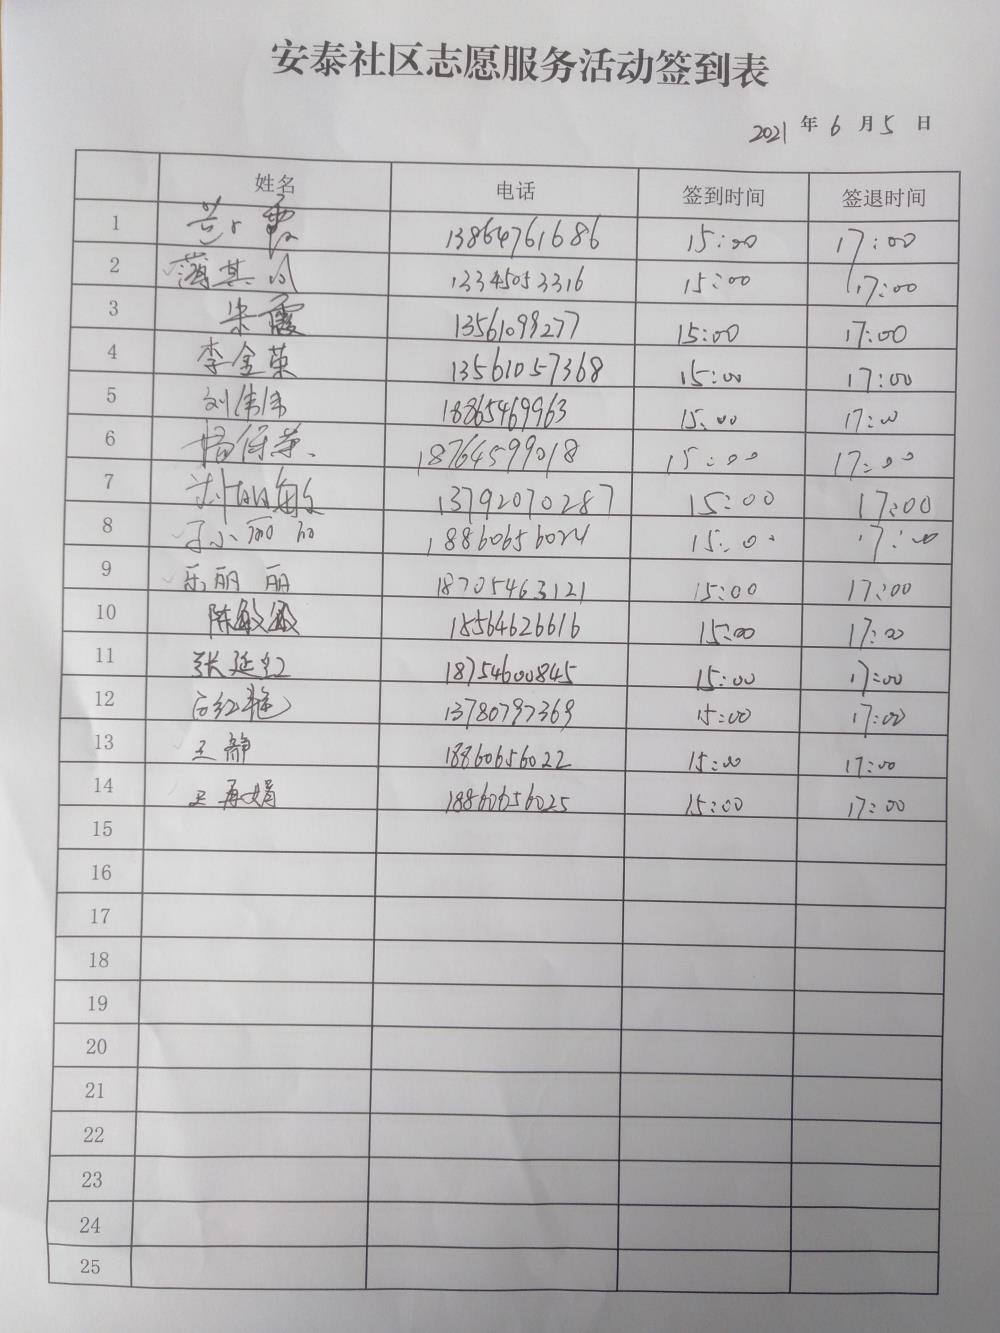 安泰社区志愿服务活动签到表
2021 年 6 月 5 日
姓名 电话 签到时间 签退时间
1 霞 13864761686 15:00 17:00
2 薄其 13345053316 15:00 17:00
3 宋霞 13561098277 15:00 17:00
4 李金英 13561057368 15:00 17:00
5 刘伟伟 18865469963 15:00 17:00
6 杨保英 18764599018 15:00 17:00
7 敏 13792070287 15:00 17:00
8 于小丽 18860656024 15:00 17:00
9 乐丽丽 18705463121 15:00 17:00
10 陈敏敏 18564626616 15:00 17:00
11 张延红 18754600845 15:00 17:00
12 白红艳 13780797369 15:00 17:00
13 王静 18860656022 15:00 17:00
14 王再娟 18860656025 15:00 17:00
15
16
17
18
19
20
21
22
23
24
25